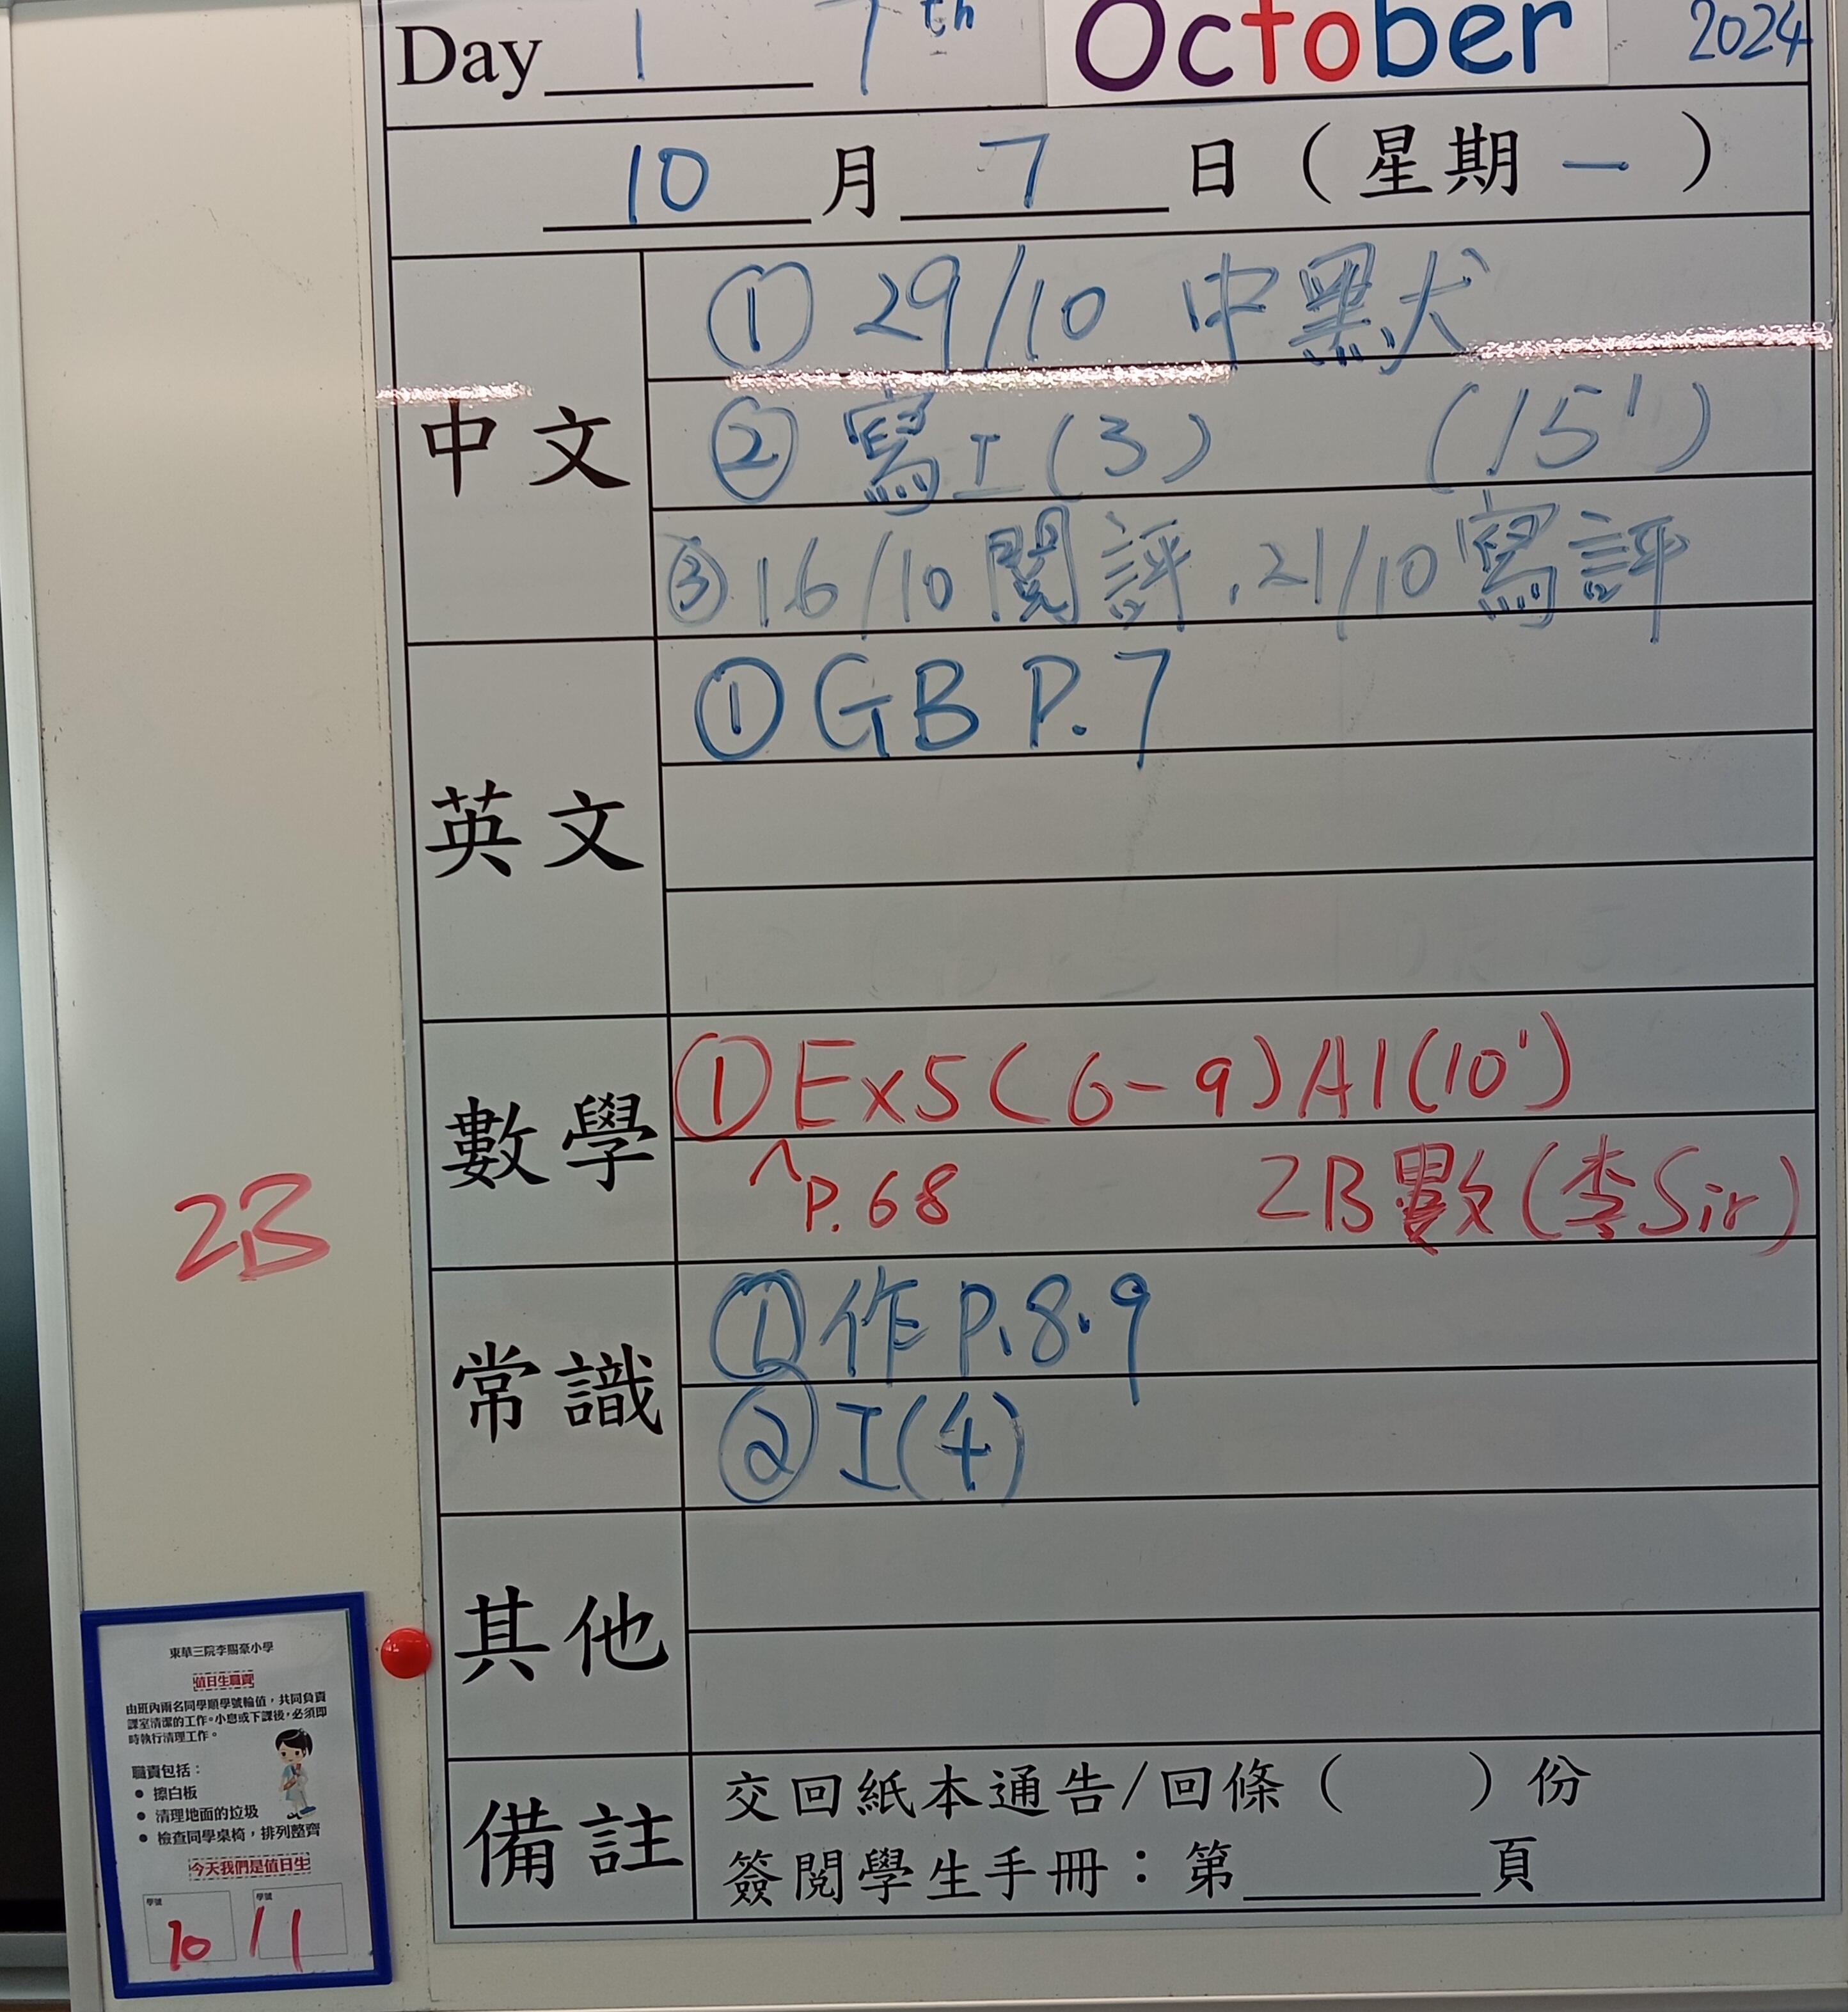 Day 1 7th October 2024
10 月 7 日 ( 星期 一 )
中文
① 29/10 中默
② 寫工(3) (15')
③ 16/10 閱評、21/10 寫評
英文
① GB P.7
數學
① Ex5(6-9)A1(10')
P.68 2B數(李Sir)
常識
① 作 P.8、9
② 工(4)
其他
備註
交回紙本通告/回條( )份
簽閱學生手冊：第 頁
2B
東華三院李賜豪小學
值日生職責
由班內兩名同學順學號輪值，共同負責
課室清潔的工作。小息或下課後，必須即
時執行清理工作。
職責包括：
● 擦白板
● 清理地面的垃圾
● 檢查同學桌椅，排列整齊
今天我們是值日生
學號 學號
10 11